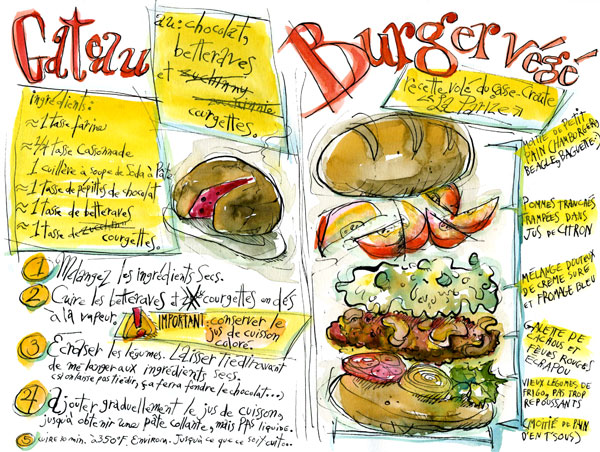 Gâteau
au: chocolat,
betteraves
et zuchinny
zuchinnie
courgettes.
ingrédients:
≈ 1 tasse farine
≈ 1/4 tasse cassonnade
1 cuillère à soupe de Soda à Pâte
≈ 1 tasse de pépites de chocolat
≈ 1 tasse de betteraves
≈ 1 tasse de zucchini
courgettes.
1 Mélangez les ingrédients secs.
2 Cuire les betteraves et courgettes en dés
à la vapeur.
IMPORTANT: conserver le
jus de cuisson
coloré.
3 Écraser les légumes. Laisser tiédir avant
de mélanger aux ingrédients secs.
(si on laisse pas tiédir, ça fera fondre le chocolat...)
4 Ajouter graduellement le jus de cuisson
jusqu'à obtenir une pâte collante, mais PAS liquide.
5 cuire 30 min. à 350°F. Environ. Jusqu'à ce que ce soit cuit...
Burger végé
recette volé du casse-croûte
La Pari
MOITIÉ DE PETIT
PAIN (HAMBOURGEOIS,
BEAGLE, BAGUETTE)
POMMES TRANCHÉES
TREMPÉES DANS
JUS DE CITRON
MÉLANGE DOUTEUX
DE CRÈME SURE
ET FROMAGE BLEU
GALETTE DE
CACHOUS ET
FÈVES ROUGES
ÉCRAPOU
VIEUX LÉGUMES DE
FRIGO, PAS TROP
REPOUSSANTS
(MOITIÉ DE PAIN
D'EN TSOUS)